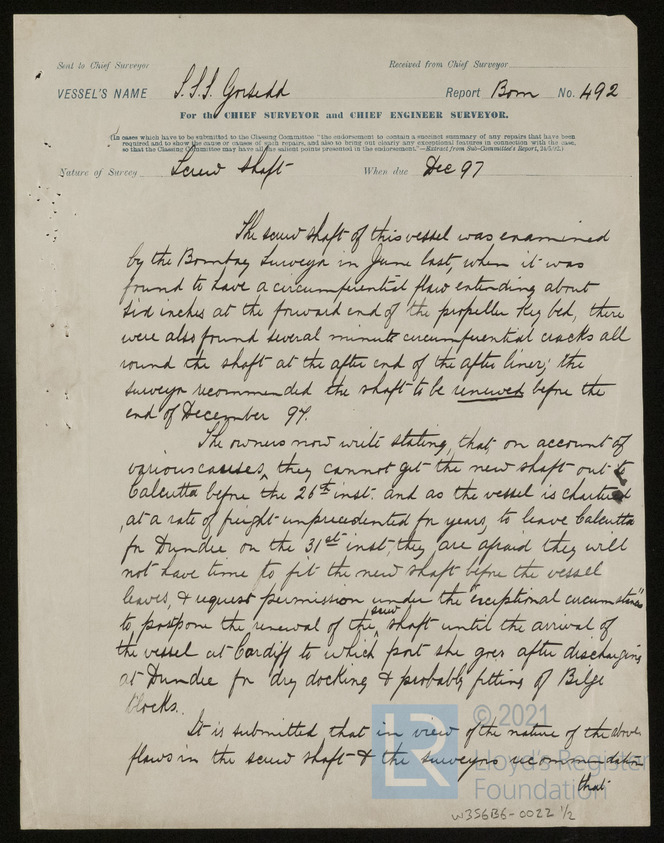 Sent to Chief Surveyor
Received from Chief Surveyor
VESSEL'S NAME S.S.S. Gorsedd Report Bom No. 492
For the CHIEF SURVEYOR and CHIEF ENGINEER SURVEYOR.
(In cases which have to be submitted to the Classing Committee "the endorsement to contain a succinct summary of any repairs that have been
required and to show the cause or causes of such repairs, and also to bring out clearly any exceptional features in connection with the case,
so that the Classing Committee may have all the salient points presented in the endorsement."—Extract from Sub-Committee's Report, 24/5/92.)
Nature of Survey Screw shaft When due Dec 97
The screw shaft of this vessel was examined
by the Bombay Surveyor in June last, when it was
found to have a circumferential flaw extending about
six inches at the forward end of the propeller key bed, there
were also found several minute circumferential cracks all
round the shaft at the after end of the after liner; the
surveyor recommended the shaft to be renewed before the
end of December 97.
The owners now write stating, that, on account of
various causes, they cannot get the new shaft out to
Calcutta before the 26th inst. and as the vessel is chartered
, at a rate of freight unprecedented for years, to leave Calcutta
for Dundee on the 31st inst, they are afraid they will
not have time to fit the new shaft before the vessel
leaves, & request permission under the "exceptional circumstances"
to postpone the renewal of the screw shaft until the arrival of
the vessel at Cardiff to which port she goes after discharging
at Dundee for dry docking & probably fitting of Bilge
blocks.
It is submitted, that in view of the nature of the above
flaws in the screw shaft & the surveyors recommendation
that
© 2021
LR
Lloyd's Register
Foundation
W356B6-0022 1/2